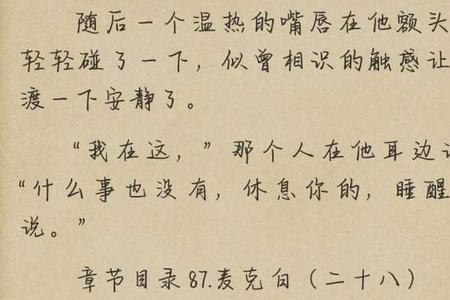 随后一个温热的嘴唇在他额头
轻轻碰了一下，似曾相识的触感让
渡一下安静了。
“我在这，”那个人在他耳边
“什么事也没有，休息你的，睡醒
说。”
章节目录87.麦克白（二十八）